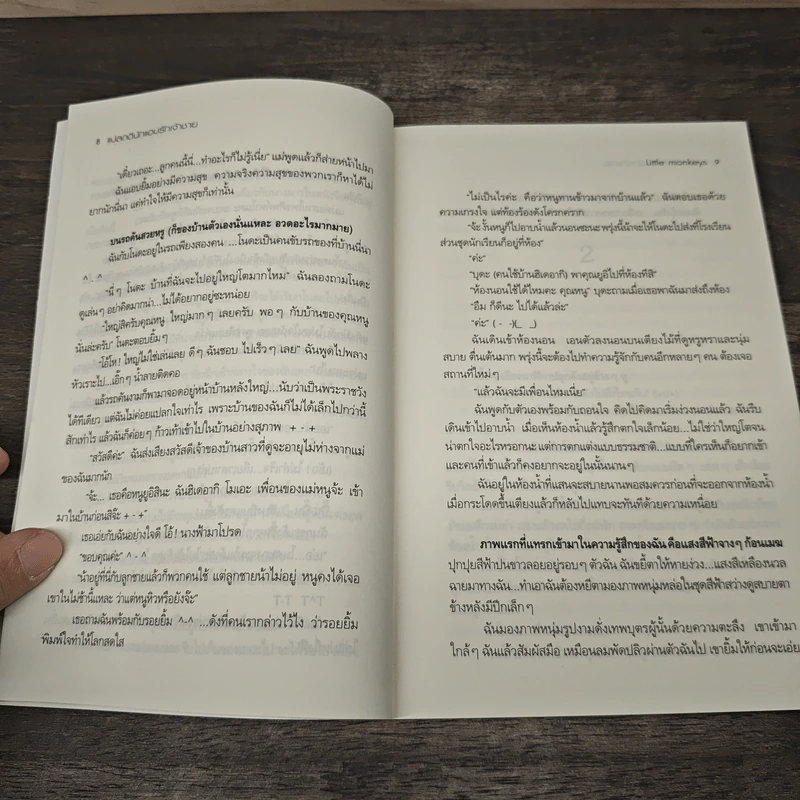 8 แปลกดีนักแอบรักเจ้าชาย
"เดี๋ยวเถอะ...ลูกคนนี้นี่...ทำอะไรก็ไม่รู้เนี่ย" แม่พูดแล้วก็ส่ายหน้าไปมา
ฉันแอบยิ้มอย่างมีความสุข ความจริงความสุขของพวกเราก็หาได้ไม่
ยากนักนี่นา แค่ทำใจให้มีความสุขก็เท่านั้น
บนรถคันสวยหรู (ก็ของบ้านตัวเองนั่นแหละ อวดอะไรมากมาย)
ฉันกับโนตะอยู่ในรถเพียงสองคน ...โนตะเป็นคนขับรถของที่บ้านนี่นา
^ . ^
"นี่ๆ โนตะ บ้านที่ฉันจะไปอยู่ใหญ่โตมากไหม" ฉันลองถามโนตะ
ดูเล่นๆ อย่าคิดมากน่า...ไม่ได้อยากอยู่ซะหน่อย
"ใหญ่สิครับคุณหนู ใหญ่มากๆ เลยครับ พอๆ กับบ้านของคุณหนู
นั่นล่ะครับ" โนตะตอบยิ้มๆ
"โอ้โห! ใหญ่ไม่ใช่เล่นเลย ดีๆ ฉันชอบ ไปเร็วๆ เลย" ฉันพูดไปพลาง
หัวเราะไป...เอิ๊กๆ น้ำลายติดคอ
แล้วรถคันงามก็พามาจอดอยู่หน้าบ้านหลังใหญ่...นับว่าเป็นพระราชวัง
ได้ทีเดียว แต่ฉันไม่ค่อยแปลกใจเท่าไร เพราะบ้านของฉันก็ไม่ได้เล็กไปกว่านี้
สักเท่าไร แล้วฉันก็ค่อยๆ ก้าวเท้าเข้าไปในบ้านอย่างสุภาพ + - +
"สวัสดีค่ะ" ฉันส่งเสียงสวัสดีเจ้าของบ้านสาวที่ดูจะอายุไม่ห่างจากแม่
ของฉันมากนัก
"จ้ะ... เธอคือหนูยูอิสินะ ฉันฮิเดอากิ โมเอะ เพื่อนของแม่หนูจ้ะ เข้า
มาในบ้านก่อนสิจ๊ะ + - +"
เธอเอ่ยกับฉันอย่างใจดี โอ้! นางฟ้ามาโปรด
"ขอบคุณค่ะ" ^ - ^
"น้าอยู่ที่นี่กับลูกชายแล้วก็พวกคนใช้ แต่ลูกชายน้าไม่อยู่ หนูคงได้เจอ
เขาในไม่ช้านี้แหละ ว่าแต่หนูหิวหรือยังจ๊ะ"
เธอถามฉันพร้อมกับรอยยิ้ม ^-^ ...ดังที่คนเรากล่าวไว้ไง ว่ารอยยิ้ม
พิมพ์ใจทำให้โลกสดใส
Little monkeys 9
"ไม่เป็นไรค่ะ คือว่าหนูทานข้าวมาจากบ้านแล้ว" ฉันตอบเธอด้วย
ความเกรงใจ แต่ท้องร้องดังโครกคราก
"จ้ะ งั้นหนูก็ไปอาบน้ำแล้วนอนซะนะ พรุ่งนี้น้าจะให้โนตะไปส่งที่โรงเรียน
ส่วนชุดนักเรียนก็อยู่ที่ห้อง"
"ค่ะ"
"บุตะ (คนใช้บ้านฮิเดอากิ) พาคุณยูอิไปที่ห้องทีสิ"
"ห้องนอนใช้ได้ไหมคะ คุณหนู" บุตะถามเมื่อเธอพาฉันมาส่งถึงห้อง
"อืม ก็ดีนะ ไปได้แล้วล่ะ"
"ค่ะ" ( - -)(_ _)
ฉันเดินเข้าห้องนอน เอนตัวลงนอนบนเตียงไม้ที่ดูหรูหราและนุ่ม
สบาย ตื่นเต้นมาก พรุ่งนี้จะต้องไปทำความรู้จักกับคนอีกหลายๆ คน ต้องเจอ
สถานที่ใหม่ๆ
"แล้วฉันจะมีเพื่อนไหมเนี่ย"
ฉันพูดกับตัวเองพร้อมกับถอนใจ คิดไปคิดมาเริ่มง่วงนอนแล้ว ฉันรีบ
เดินเข้าไปอาบน้ำ เมื่อเห็นห้องน้ำแล้วรู้สึกตกใจเล็กน้อย...ไม่ใช่ว่าใหญ่โตจน
น่าตกใจอะไรหรอกนะ แต่การตกแต่งแบบธรรมชาติ...แบบที่ใครเห็นก็อยากเข้า
และคนที่เข้าแล้วก็คงอยากจะอยู่ในนั้นนานๆ
ฉันอยู่ในห้องน้ำที่แสนจะสบายนานพอสมควรก่อนที่จะออกจากห้องน้ำ
เมื่อกระโดดขึ้นเตียงแล้วก็หลับไปแทบจะทันทีด้วยความเหนื่อย
ภาพแรกที่แทรกเข้ามาในความรู้สึกของฉัน คือแสงสีฟ้าจางๆ ก้อนเมฆ
ปุกปุยสีฟ้าปนขาวลอยอยู่รอบๆ ตัวฉัน ฉันขยี้ตาให้หายง่วง...แสงสีเหลืองนวล
ฉายมาทางฉัน...ทำเอาฉันต้องหยีตามองภาพหนุ่มหล่อในชุดสีฟ้าสว่างดูสบายตา
ข้างหลังมีปีกเล็กๆ
ฉันมองภาพหนุ่มรูปงามดั่งเทพบุตรผู้นั้นด้วยความตะลึง เขาเข้ามา
ใกล้ๆ ฉันแล้วสัมผัสมือ เหมือนลมพัดปลิวผ่านตัวฉันไป เขายิ้มให้ก่อนจะเอ่ย